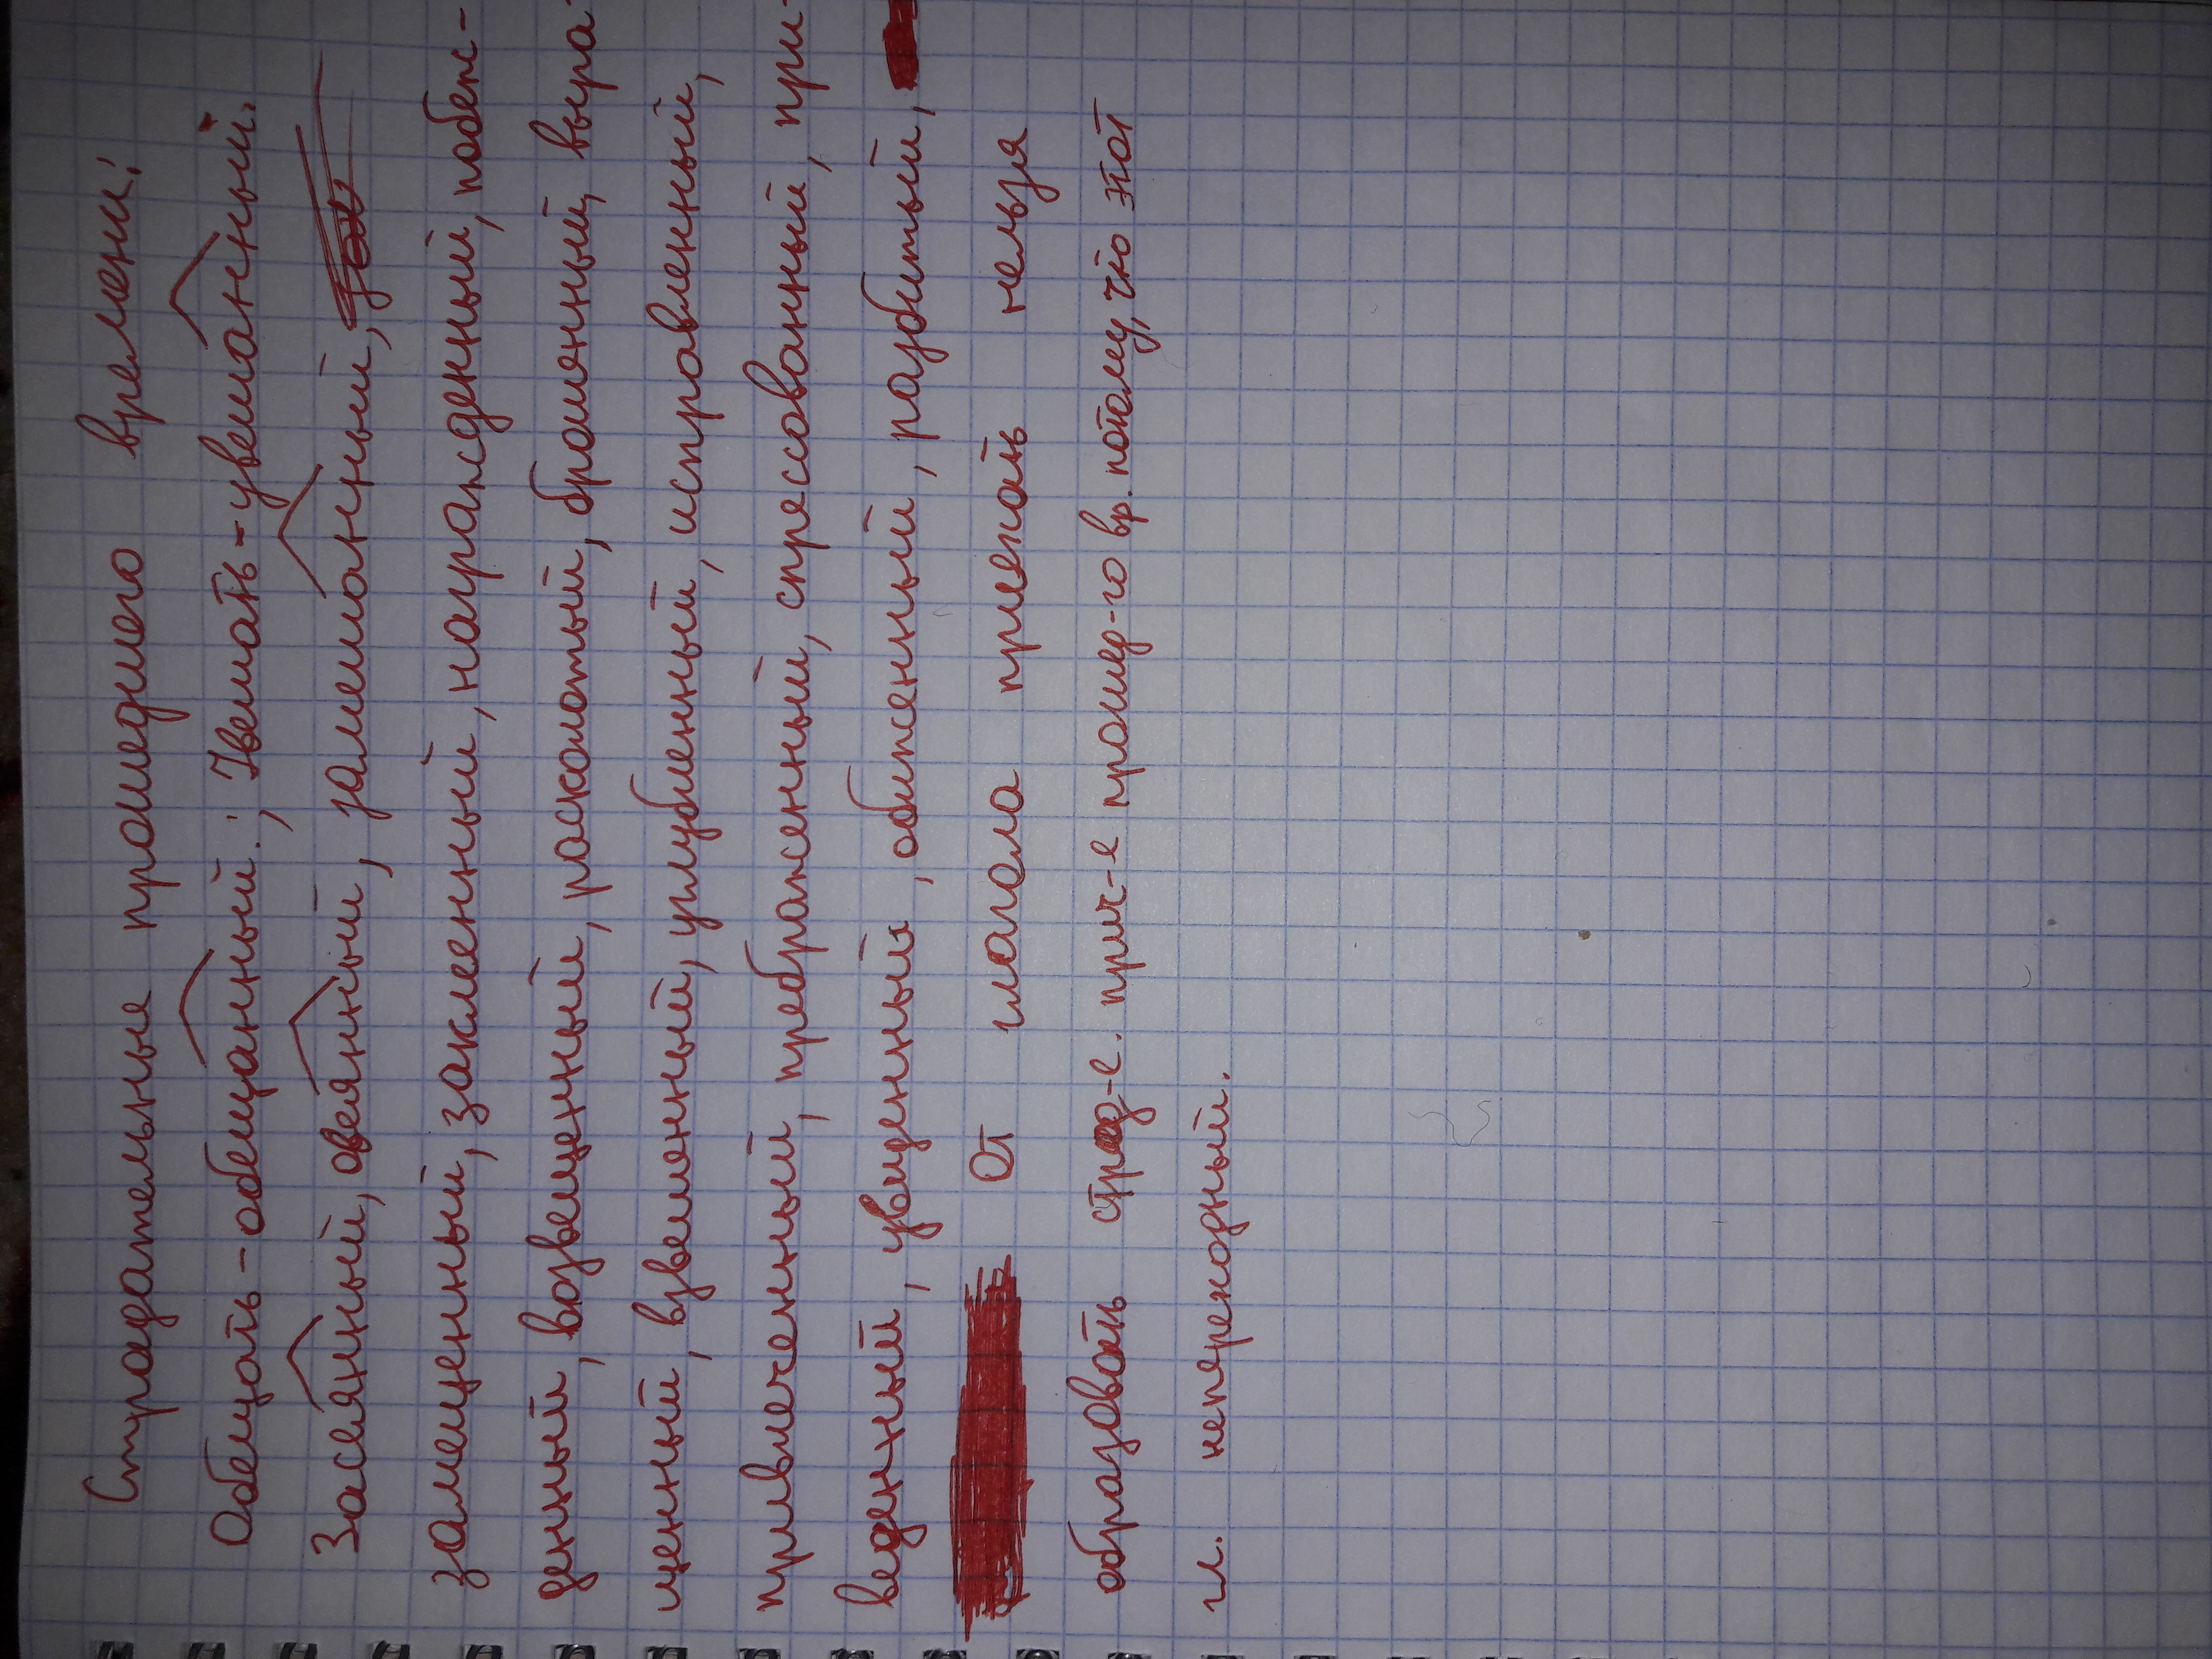 Страдательные прошедшего времени:
Обещать - обещанный; Увешать - увешанный.
Засеянный, овеянный, замешанный,
замещенный, заклеенный, награжденный, побеж-
денный, возвещенный, расколотый, браненный, выра-
щенный, взвешенный, углубленный, исправленный,
привлеченный, преображенный, спрессованный, при-
веденный, увиденный, обиженный, разбитый,
От глагола приехать нельзя
образовать страд-е. прич-е прошед-го вр. потому, что этот
гл. непереходный.